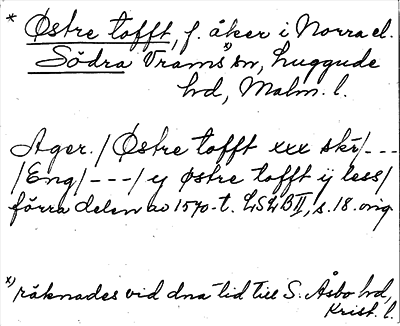 * Östre tofft, f. åker i Norra el.
Södra Vrams *) sn, Luggude
hd, Malm. l.
Ager. / Østre tofft xxx skr/---
/Eng/---/ y østre tofft ij less/
förra delen av 1570-t. LSLB II, s. 18. orig.
*) räknades vid dna tid till S. Åsbo hd,
Krist. l.